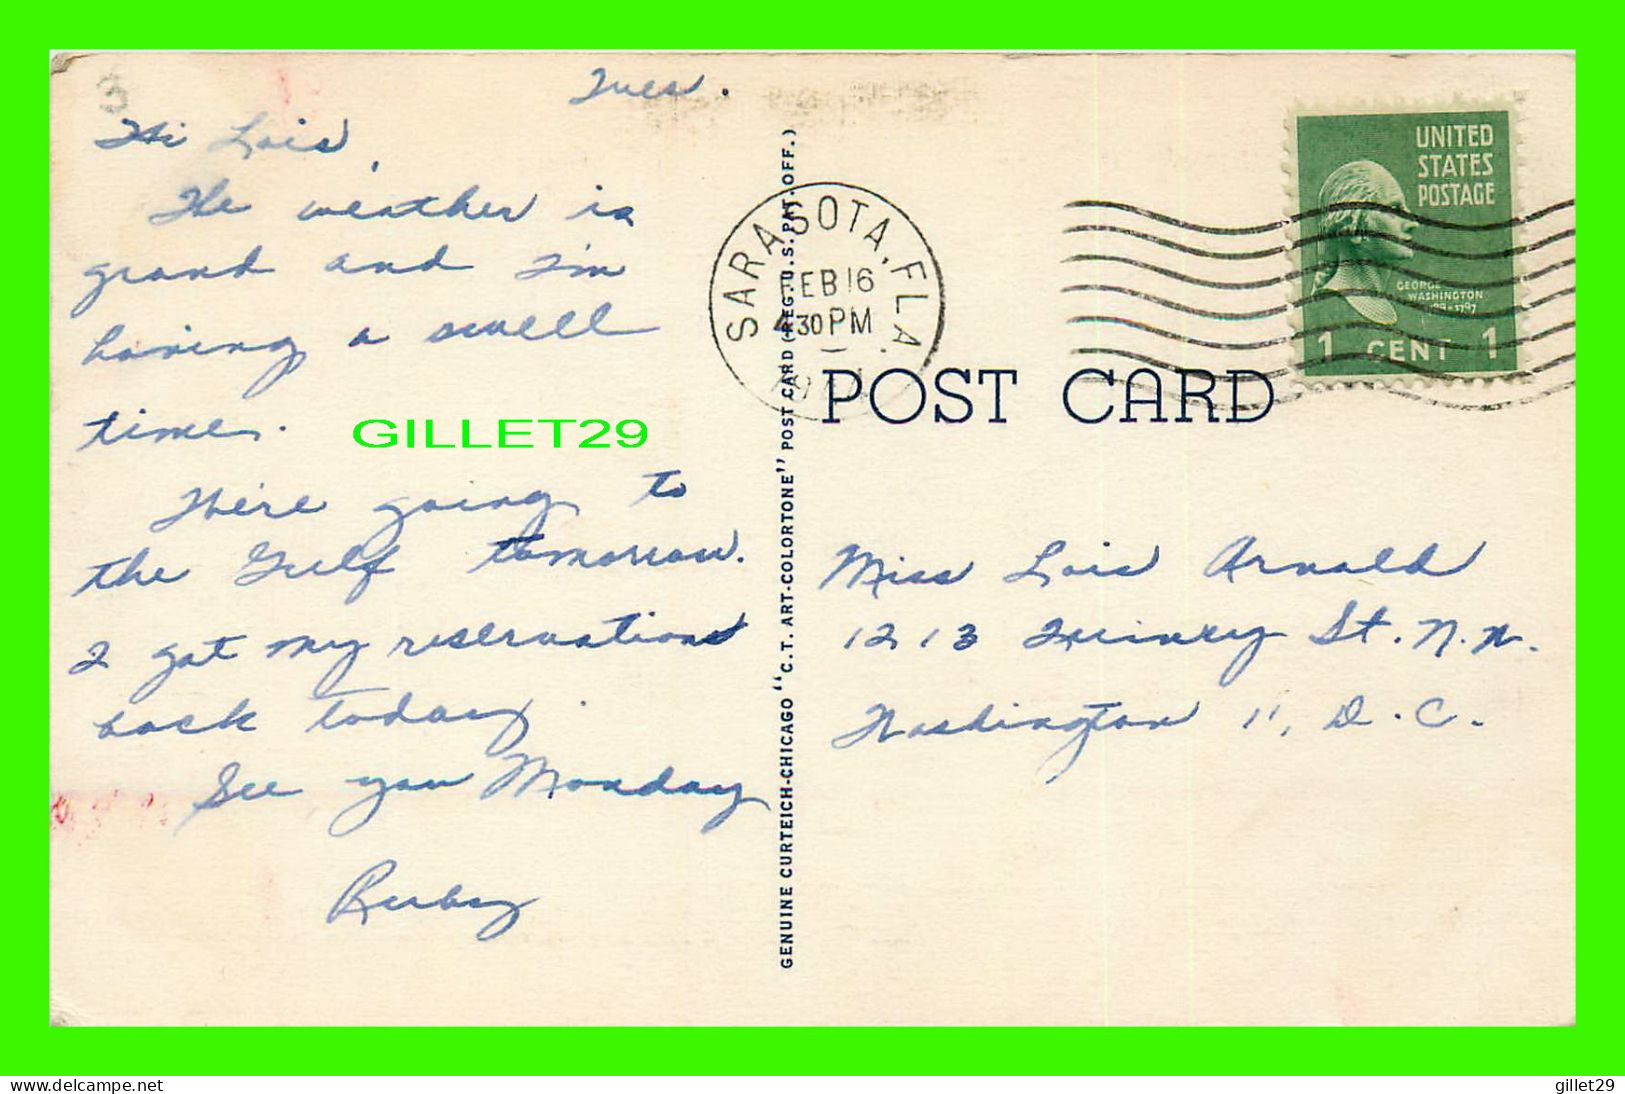 3
Tues.
Hi Lois,
The weather is
grand and I'm
having a swell
time.
GILLET29
There going to
the Gulf tomorrow.
I got my reservations
back today.
See you Monday
Ruby
GENUINE CURTEICH-CHICAGO "C.T. ART-COLORTONE" POST CARD (REG. U.S. PAT. OFF.)
SARASOTA, FLA.
FEB 16
4 30 PM
UNITED
STATES
POSTAGE
GEORGE
WASHINGTON
1 CENT 1
POST CARD
Miss Lois Arnold
1213 Quincy St. N.W.
Washington 11, D.C.
delcampe.net
gillet29